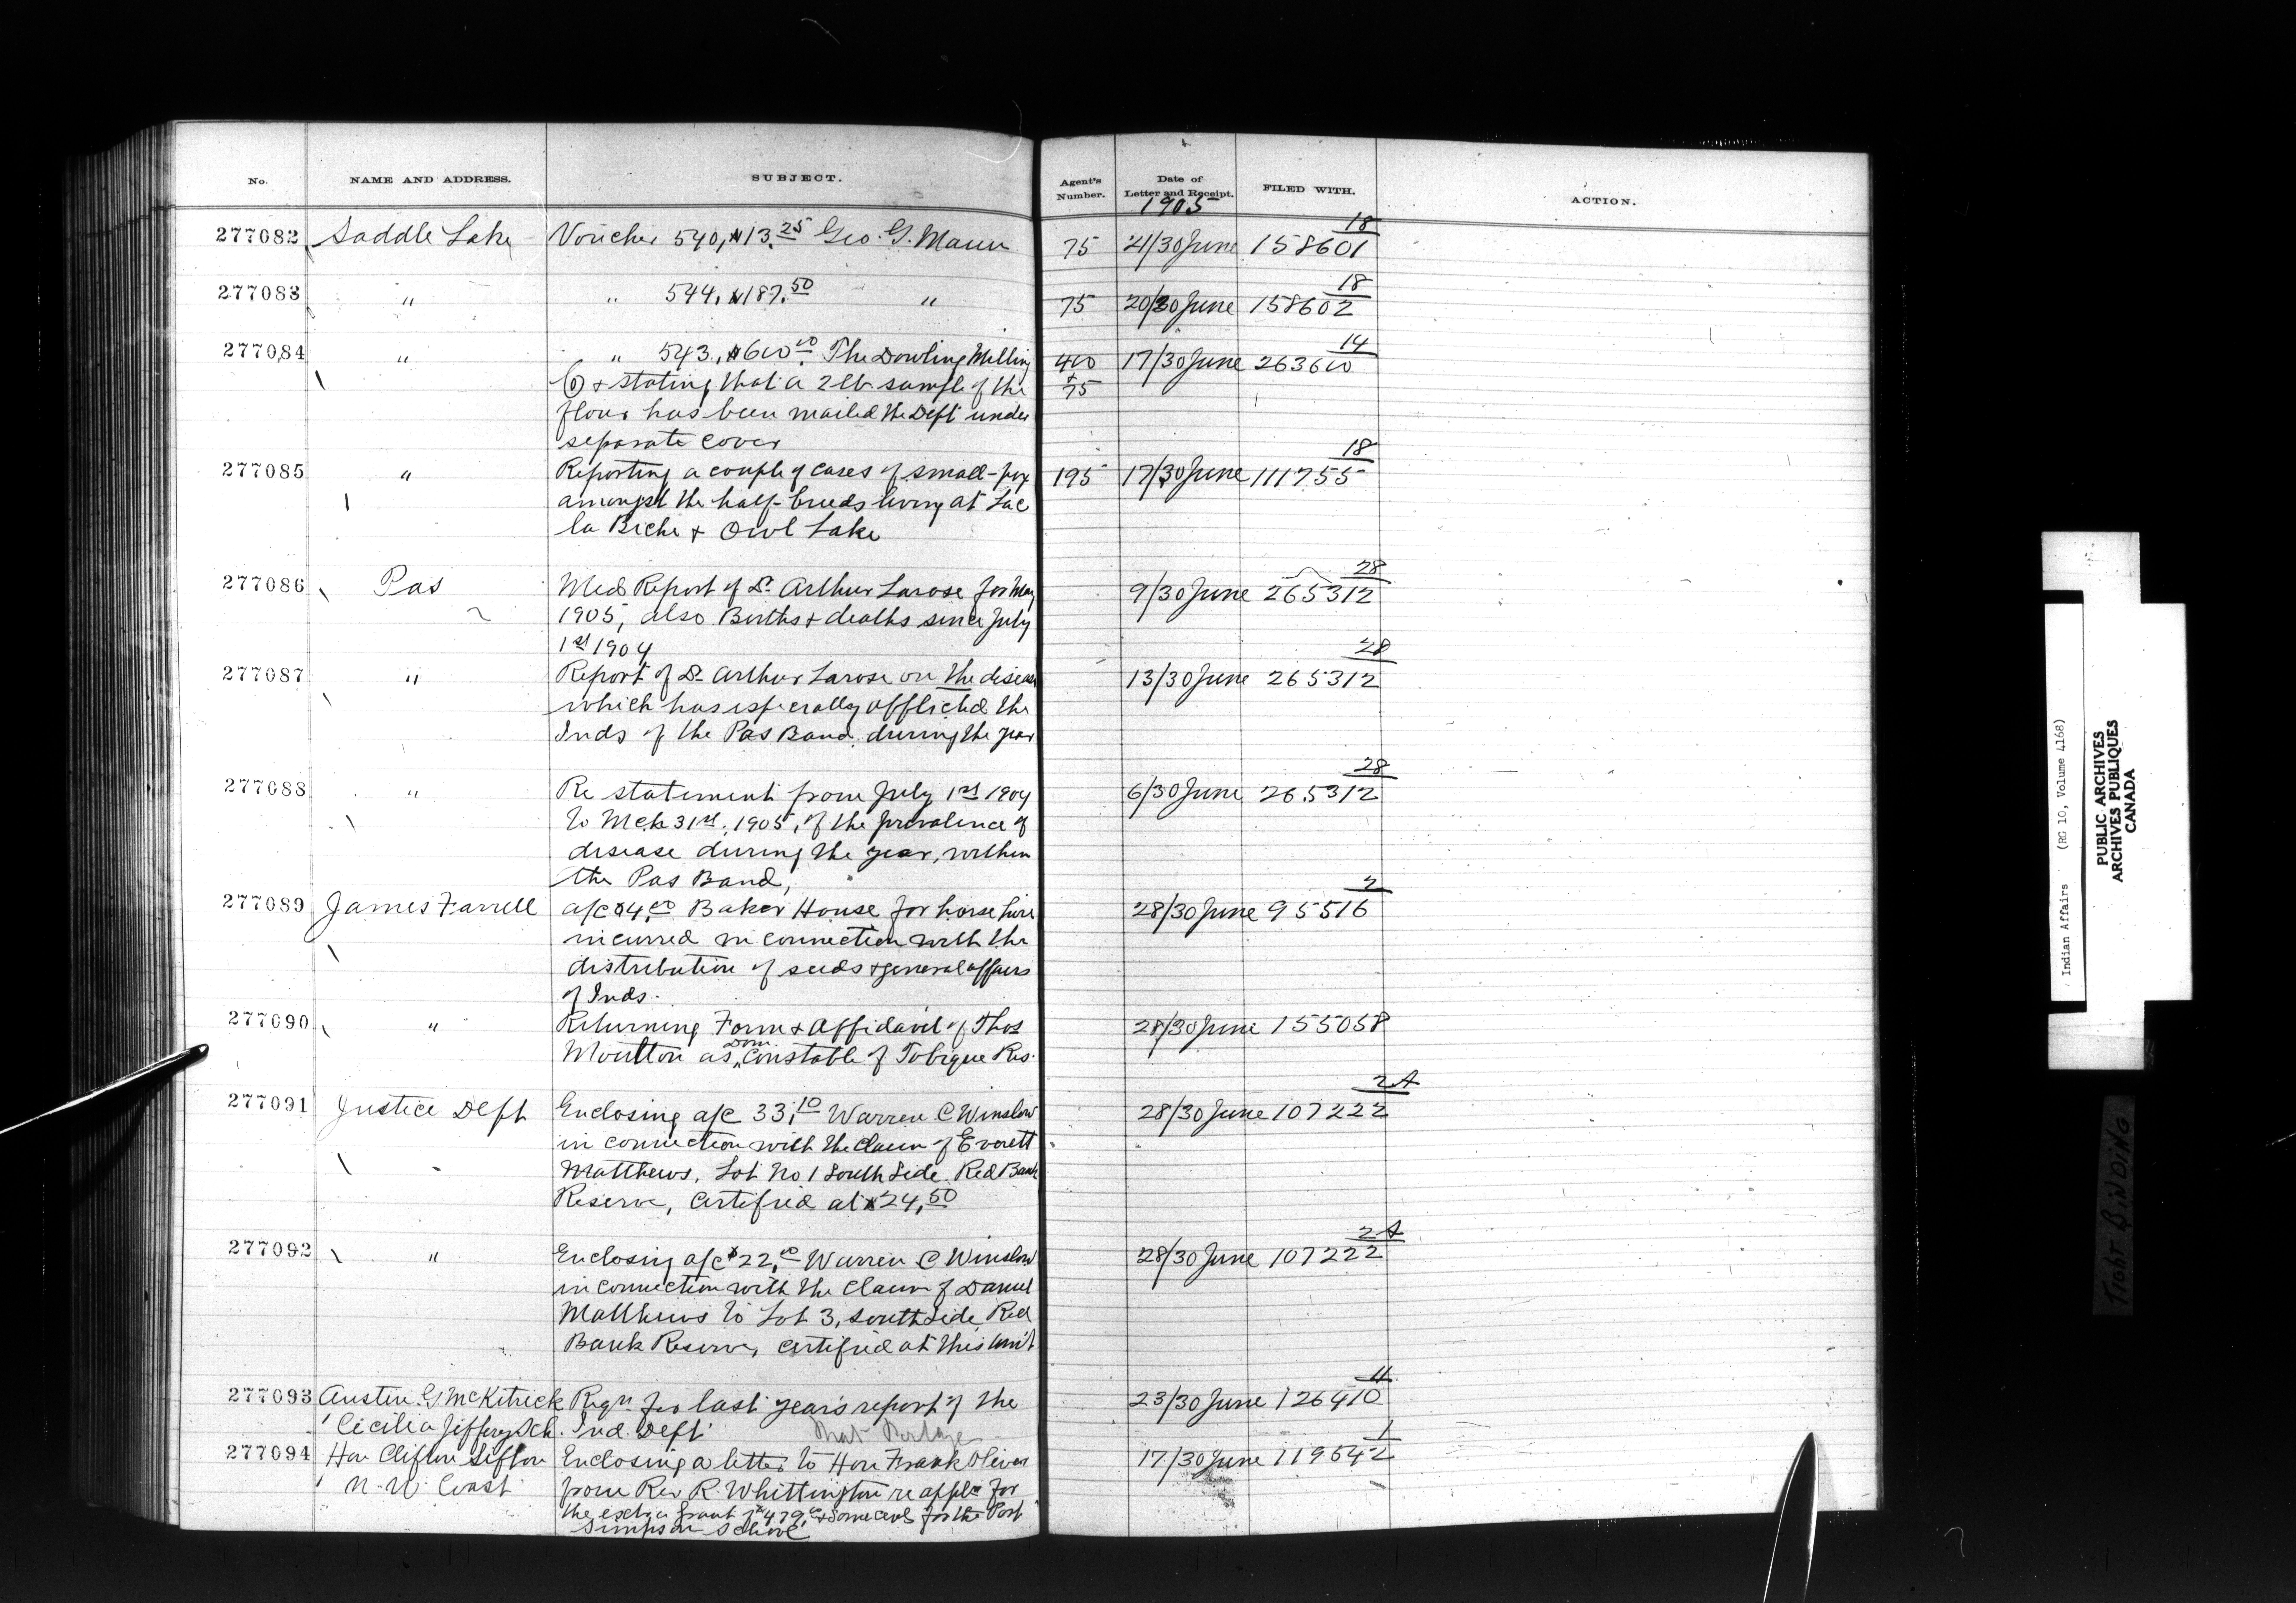 No. NAME AND ADDRESS. SUBJECT. Agent's Number. Date of Letter and Receipt. FILED WITH. ACTION.
1905
277082 Saddle Lake Voucher 540, $13.25 Geo. G. Mann 75 21/30 June 158601 18
277083 " " 544, $187.50 " 75 20/30 June 158602 18
277084 " " 543, $600.00 The Dowling Milling 400 17/30 June 263600 14
Co + stating that a 2 lb sample of the + 75
flour has been mailed the Dept under
separate cover
277085 " Reporting a couple of cases of small-pox 195 17/30 June 111755 18
amongst the half-breeds living at Lac
la Biche + Owl Lake
277086 Pas Med Report of Dr Arthur Larose for May 9/30 June 265312 28
1905, also Births + deaths since July
1st 1904
277087 " Report of Dr Arthur Larose on the disease 13/30 June 265312 28
which has especially afflicted the
Inds of the Pas Band, during the year
277088 " Re statement from July 1st 1904 6/30 June 265312 28
to Mch 31st, 1905, of the prevalence of
disease during the year, within
the Pas Band,
277089 James Farrell a/c $4.00 Baker House for horse hire 28/30 June 95516 2
incurred in connection with the
distribution of seeds + general affairs
of Inds.
277090 " Returning Form + Affidavit of Thos 28/30 June 155058
Moulton as Dom. Constable of Tobique Res.
277091 Justice Dept Enclosing a/c 33.10 Warren C Winslow 28/30 June 107222 2A
in connection with the claim of Everett
Matthews, Lot No 1 South Side Red Bank
Reserve, Certified at $24.50
277092 " Enclosing a/c $22.00 Warren C Winslow 28/30 June 107222 2A
in connection with the claim of Daniel
Matthews to Lot 3, South Side Red
Bank Reserve, certified at this am't
277093 Austin G McKitrick Reqn for last year's report of the 23/30 June 126410 11
Cicilia Jeffery Sch. Ind. Dept Rat Portage
277094 Hon Clifton Sifton Enclosing a letter to Hon Frank Oliver 17/30 June 119542 1
N. W. Coast from Rev R. Whittington re appln for
the extra grant $479.00 + some cents for the Port
Simpson School
Indian Affairs (RG 10, Volume 4168)
PUBLIC ARCHIVES
ARCHIVES PUBLIQUES
CANADA
TIGHT BINDING